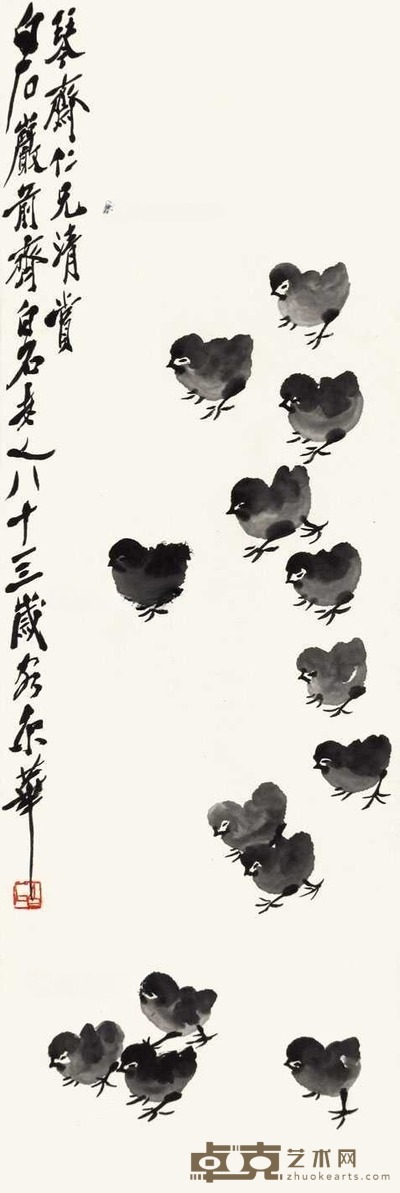 琴齋仁兄清賞
白石巖前齊白石老人八十三歲客京華
卓克艺术网
zhuokearts.com